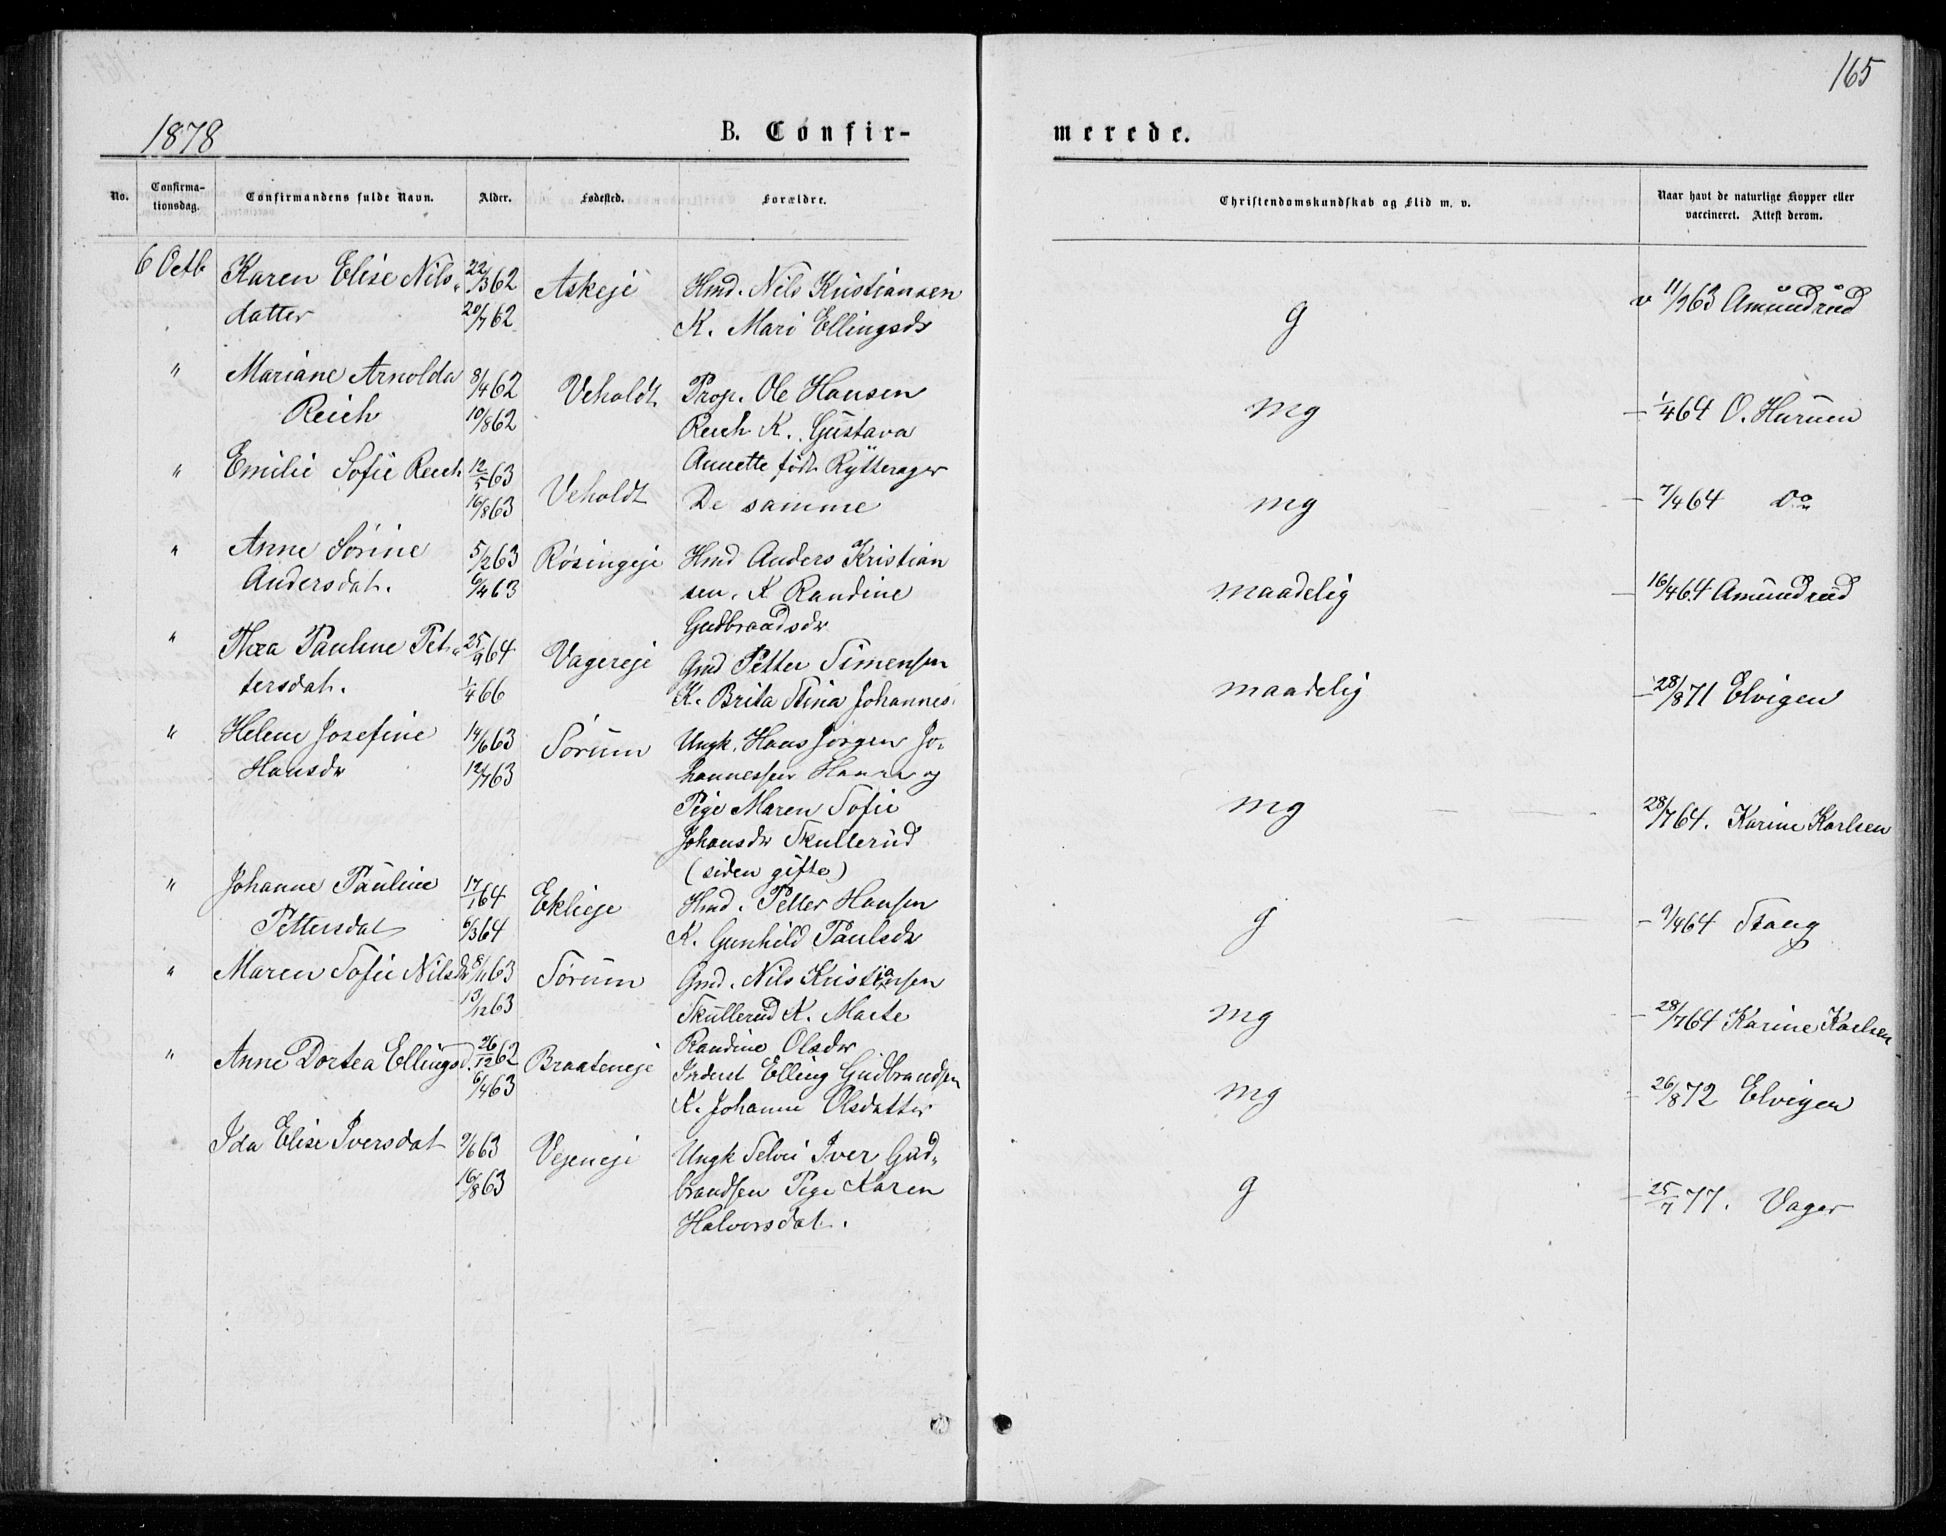 165
1878
B. Confir-
merede.
No.
Confirma-
tionsdag.
Confirmandens fulde Navn.
Alder.
Fødested.
Forældre.
Christendomskundskab og Flid m. v.
Naar havt de naturlige Kopper eller
vaccineret. Attest derom.
6 Octb Karen Elise Nils- 22/3 62 Askeje Hmd. Nils Kristiansen
datter 20/7 62 K. Mari Ellingsdr
g v 11/9 63 Amundrud
" Mariane Arnolda 8/4 62 Veholdt Prop. Ole Hansen
Reich 10/8 62 Reich K. Gustava
Annette født Rytterager
mg — 1/4 64 O. Huruen
" Emilie Sofie Reich 12/5 63 Veholdt De samme
16/8 63
mg — 7/4 64 Do
" Anne Sørine 5/2 63 Røsingeje Hmd Anders Kristian
Andersdat. 6/4 63 sen. K Randine
Gudbrandsdr
maadelig — 16/4 64 Amundrud
" Thea Pauline Pet- 25/9 64 Vagereje Gmd Petter Simensen
tersdat. 1/4 66 K. Brita Stina Johannes.
maadelig — 28/8 71 Elvigen
" Helene Josefine 14/6 63 Sørum Ungk. Hans Jørgen Jo-
Hansdr 12/7 63 hannessen og
Pige Maren Sofie
Johansdr Skullerud
(siden gifte)
mg 28/7 64. Karine Karlsen
" Johanne Pauline 17/1 64 Eklieje Hmd. Petter Hansen
Pettersdat 6/3 64 K. Gunhild Paulsdr
g — 9/4 64 Stang
" Maren Sofie Nilsdr 8/11 63 Sørum Gmd. Nils Kristiansen
13/12 63 Skullerud K. Marte
Randine Olsdr
mg — 28/7 64 Karine Karlsen
" Anne Dortea Ellingsd. 26/12 62 Braateneje Inderst Elling Gudbrandsen
6/4 63 K. Johanne Olsdatter
mg — 26/8 72 Elvigen
Ida Elise Iversdat 9/6 63 Vejeneje Ungk Selvei Iver Gud-
16/8 63 brandsen Pige Karen
Halvorsdat.
g — 25/7 77. Vager